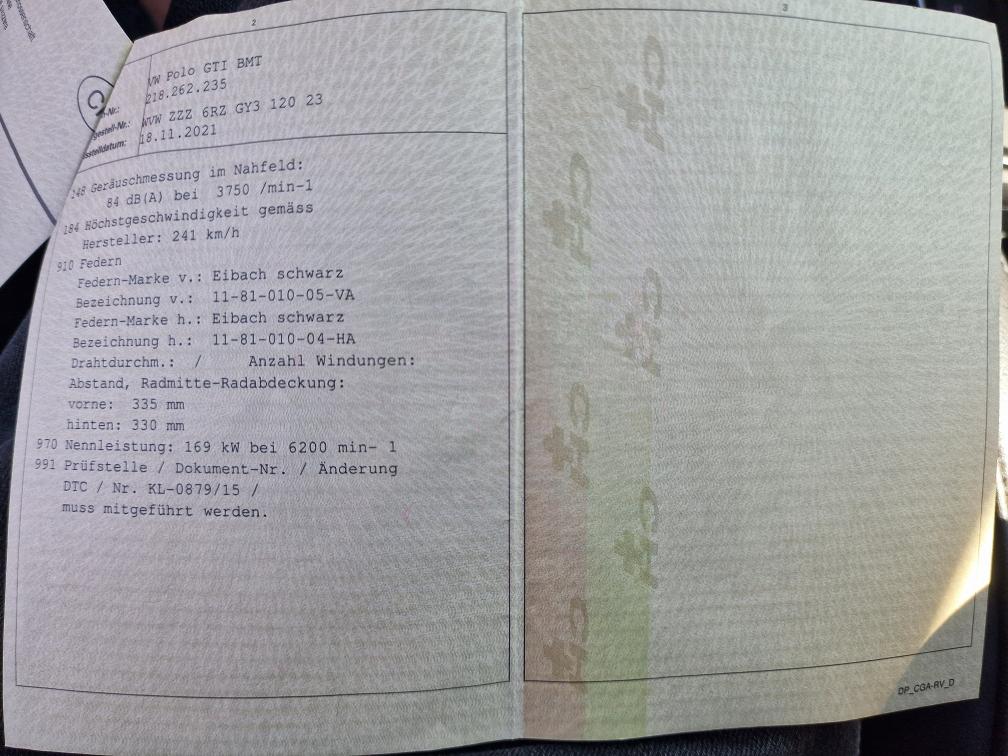 2
VW Polo GTI BMT
218.262.235
WVW ZZZ 6RZ GY3 120 23
18.11.2021
148 Geräuschmessung im Nahfeld:
84 dB(A) bei 3750 /min-1
184 Höchstgeschwindigkeit gemäss
Hersteller: 241 km/h
910 Federn
Federn-Marke v.: Eibach schwarz
Bezeichnung v.: 11-81-010-05-VA
Federn-Marke h.: Eibach schwarz
Bezeichnung h.: 11-81-010-04-HA
Drahtdurchm.: / Anzahl Windungen:
Abstand, Radmitte-Radabdeckung:
vorne: 335 mm
hinten: 330 mm
970 Nennleistung: 169 kW bei 6200 min- 1
991 Prüfstelle / Dokument-Nr. / Änderung
DTC / Nr. KL-0879/15 /
muss mitgeführt werden.
3
CH
CH
CH
CH
CH
CH
DP_CGA-RV_D